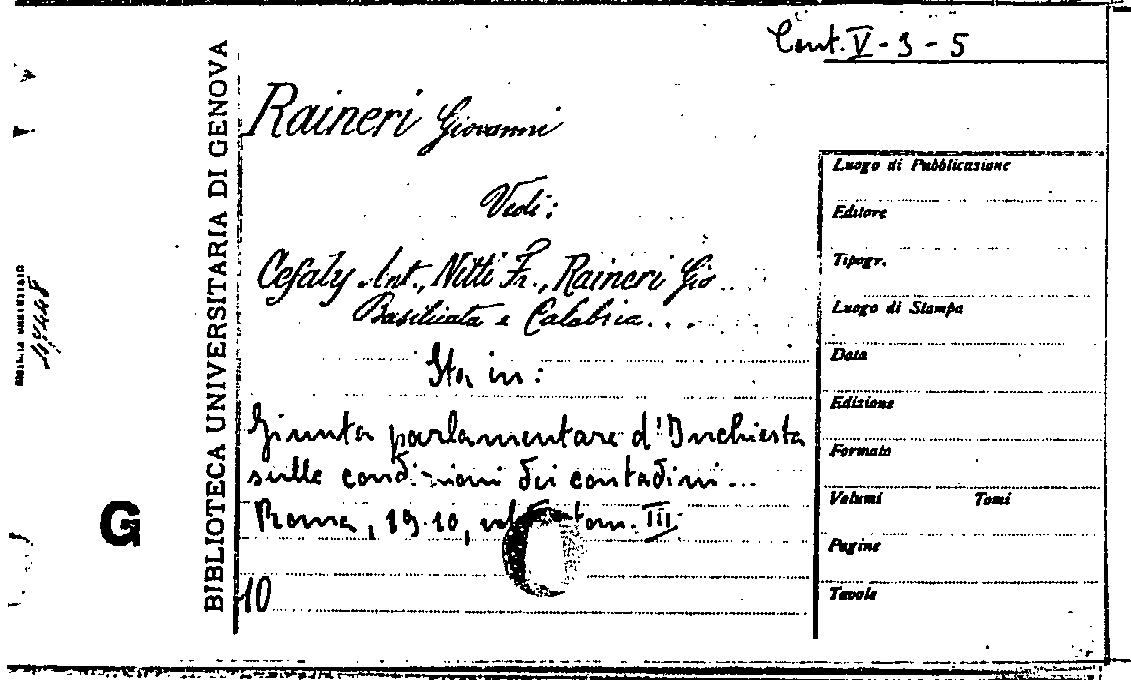 Cont. V - 3 - 5
Raineri Giovanni
Vedi:
Cefaly Ant., Nitti Fr., Raineri Gio..
Basilicata e Calabria...
Sta in:
Giunta parlamentare d'Inchiesta
sulle condizioni dei contadini...
Roma, 1910, tom. III
10
BIBLIOTECA UNIVERSITARIA DI GENOVA
G
Luogo di Pubblicazione
Editore
Tipogr.
Luogo di Stampa
Data
Edizione
Formato
Volumi Tomi
Pagine
Tavole